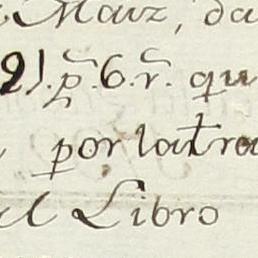 Maiz, da
21.p̃.6.r̃. qu
por latra
el Libro